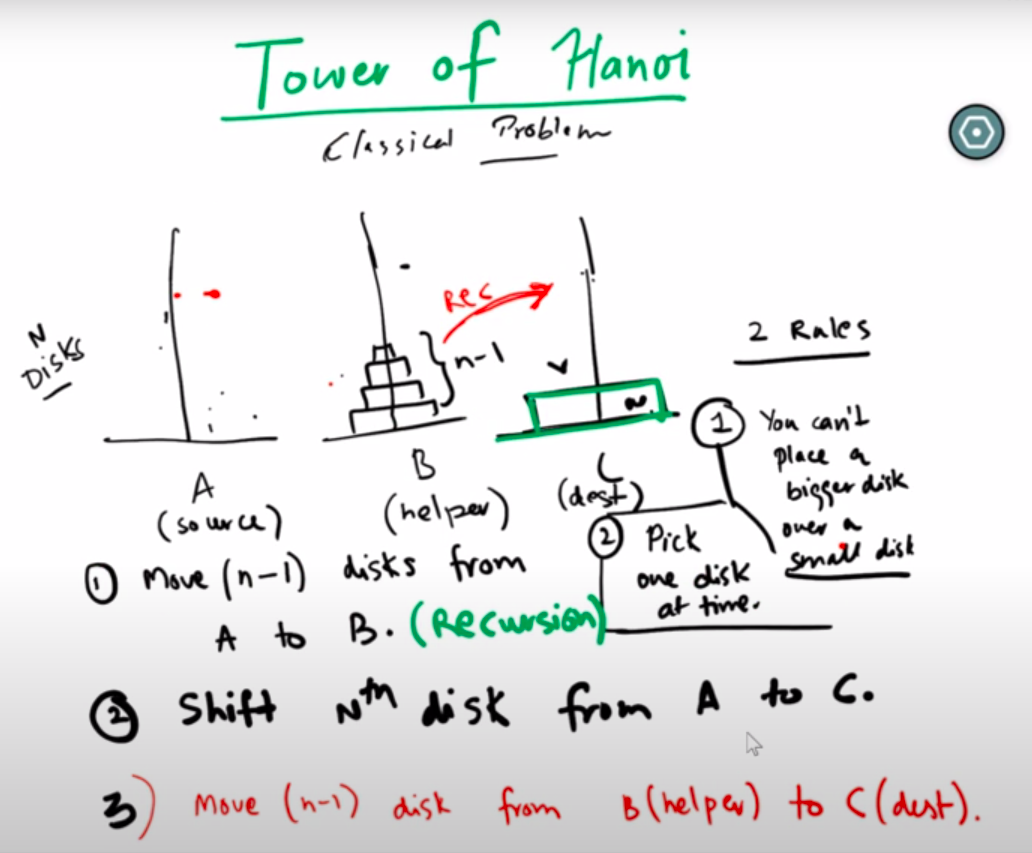 Tower of Hanoi
Classical Problem
N
Disks
REC
n-1
N
A
(source)
B
(helper)
C
(dest)
2 Rules
1 You can't
place a
bigger disk
over a
small disk
2 Pick
one disk
at time.
1 Move (n-1) disks from
A to B. (Recursion)
2 Shift Nth disk from A to C.
3) Move (n-1) disk from B(helper) to C(dest).